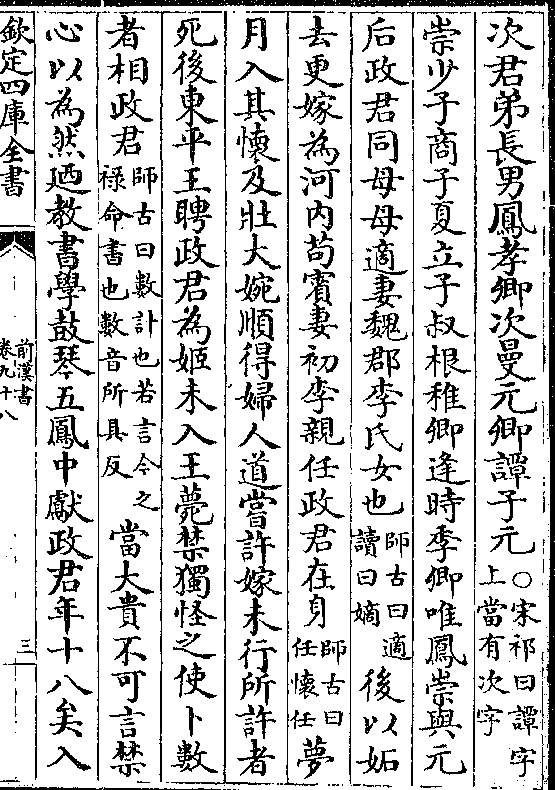 次君弟長男鳳孝卿次曼元卿譚子元○宋祁曰譚字上當有次字
崇少子商子夏立子叔根稚卿逢時季卿唯鳳崇與元
后政君同母母適妻魏郡李氏女也師古曰適讀曰嫡後以妬
去更嫁為河内苟賓妻初李親任政君在身師古曰任懷任夢
月入其懷及壯大婉順得婦人道嘗許嫁未行所許者
死後東平王聘政君為姬未入王薨禁獨怪之使卜數
者相政君師古曰數計也若言今之祿命書也數音所具反當大貴不可言禁
心以為然廼教書學鼓琴五鳳中獻政君年十八矣入
欽定四庫全書
前漢書
卷九十八
三